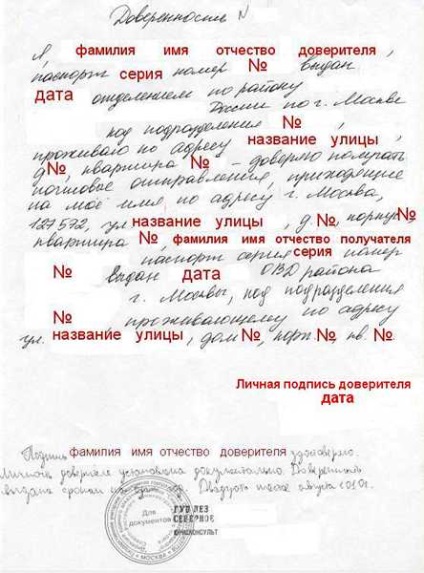 Доверенность N
Я, фамилия имя отчество доверителя,
паспорт серия номер № выдан
дата отделением по району
России по г. Москве
код подразделения №,
проживаю по адресу название улицы,
д№, квартира № - доверяю получать
почтовые отправления, приходящие
на моё имя, по адресу г. Москва,
127572, ул название улицы, д №, корпус№
квартира №, фамилия имя отчество получателя
паспорт серия серия номер
№ выдан дата ОВД района
г. Москвы, код подразделения
№ проживающему по адресу
ул. название улицы, дом №, корп. №, кв. №.
Личная подпись доверителя
дата
Подпись фамилия имя отчество доверителя удостоверяю.
Личность доверителя установлена документально. Доверенность
выдана сроком на августа 2010г.
Для
документов
ГУП ДЕЗ
СЕВЕРНОЕ
ЮРИСКОНСУЛЬТ
МОСКВА